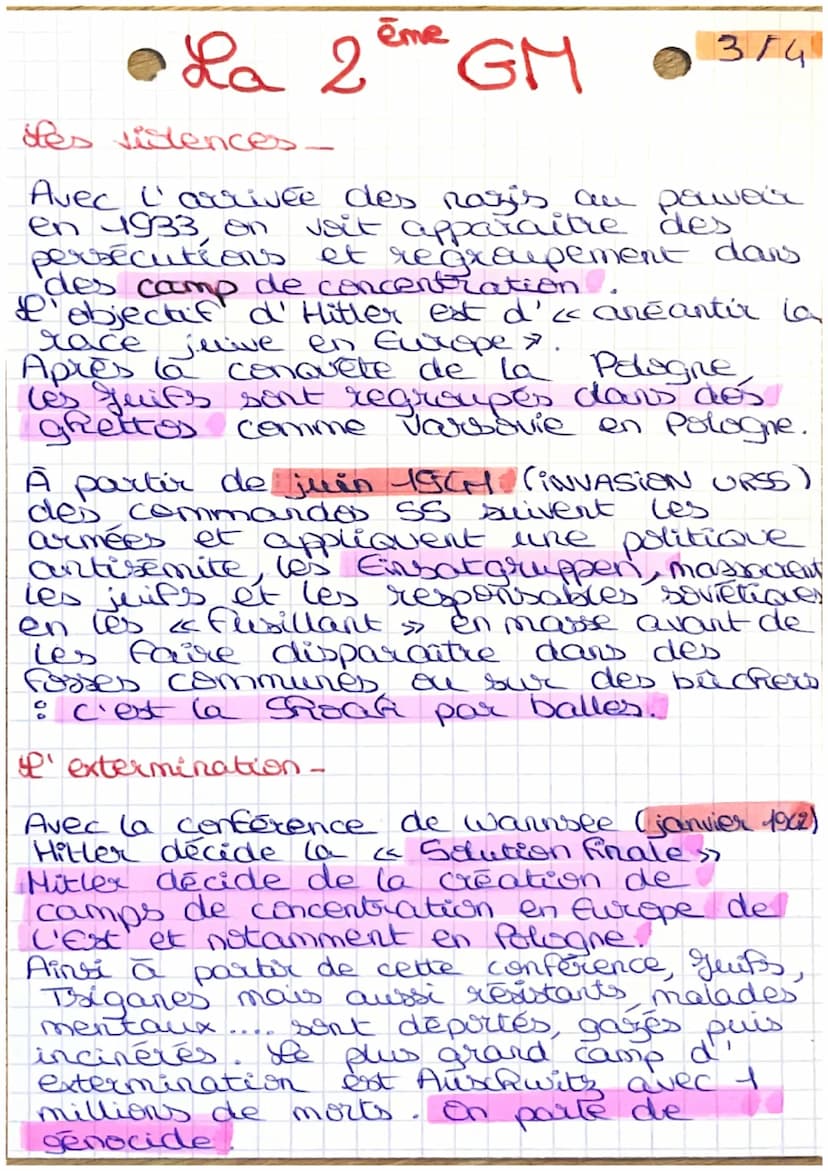 La 2ème GM
3/4
Les violences -
Avec l'arrivée des nazis au pouvoir
en 1933, on voit apparaitre des
persécutions et regroupement dans
des camp de concentration.
L'objectif d'Hitler est d'« anéantir la
race juive en Europe ».
Après la conquête de la Pologne,
les Juifs sont regroupés dans des
ghettos comme Varsovie en Pologne.
À partir de juin 1941 (INVASION URSS)
des commandos SS suivent les
armées et appliquent une politique
antisémite, les Einsatgruppen, massacrent
les juifs et les responsables soviétiques
en les « fusillant » en masse avant de
les faire disparaître dans des
fosses communes ou sur des bûchers
: c'est la Shoah par balles.
L'extermination -
Avec la conférence de Wannsee (janvier 1942)
Hitler décide la « Solution finale »
Hitler décide de la création de
camps de concentration en Europe de
l'Est et notamment en Pologne.
Ainsi à partir de cette conférence, Juifs,
Tsiganes mais aussi résistants, malades
mentaux .... sont déportés, gazés puis
incinérés. Le plus grand camp d'
extermination est Auschwitz avec 1
millions de morts. On parle de
génocide.